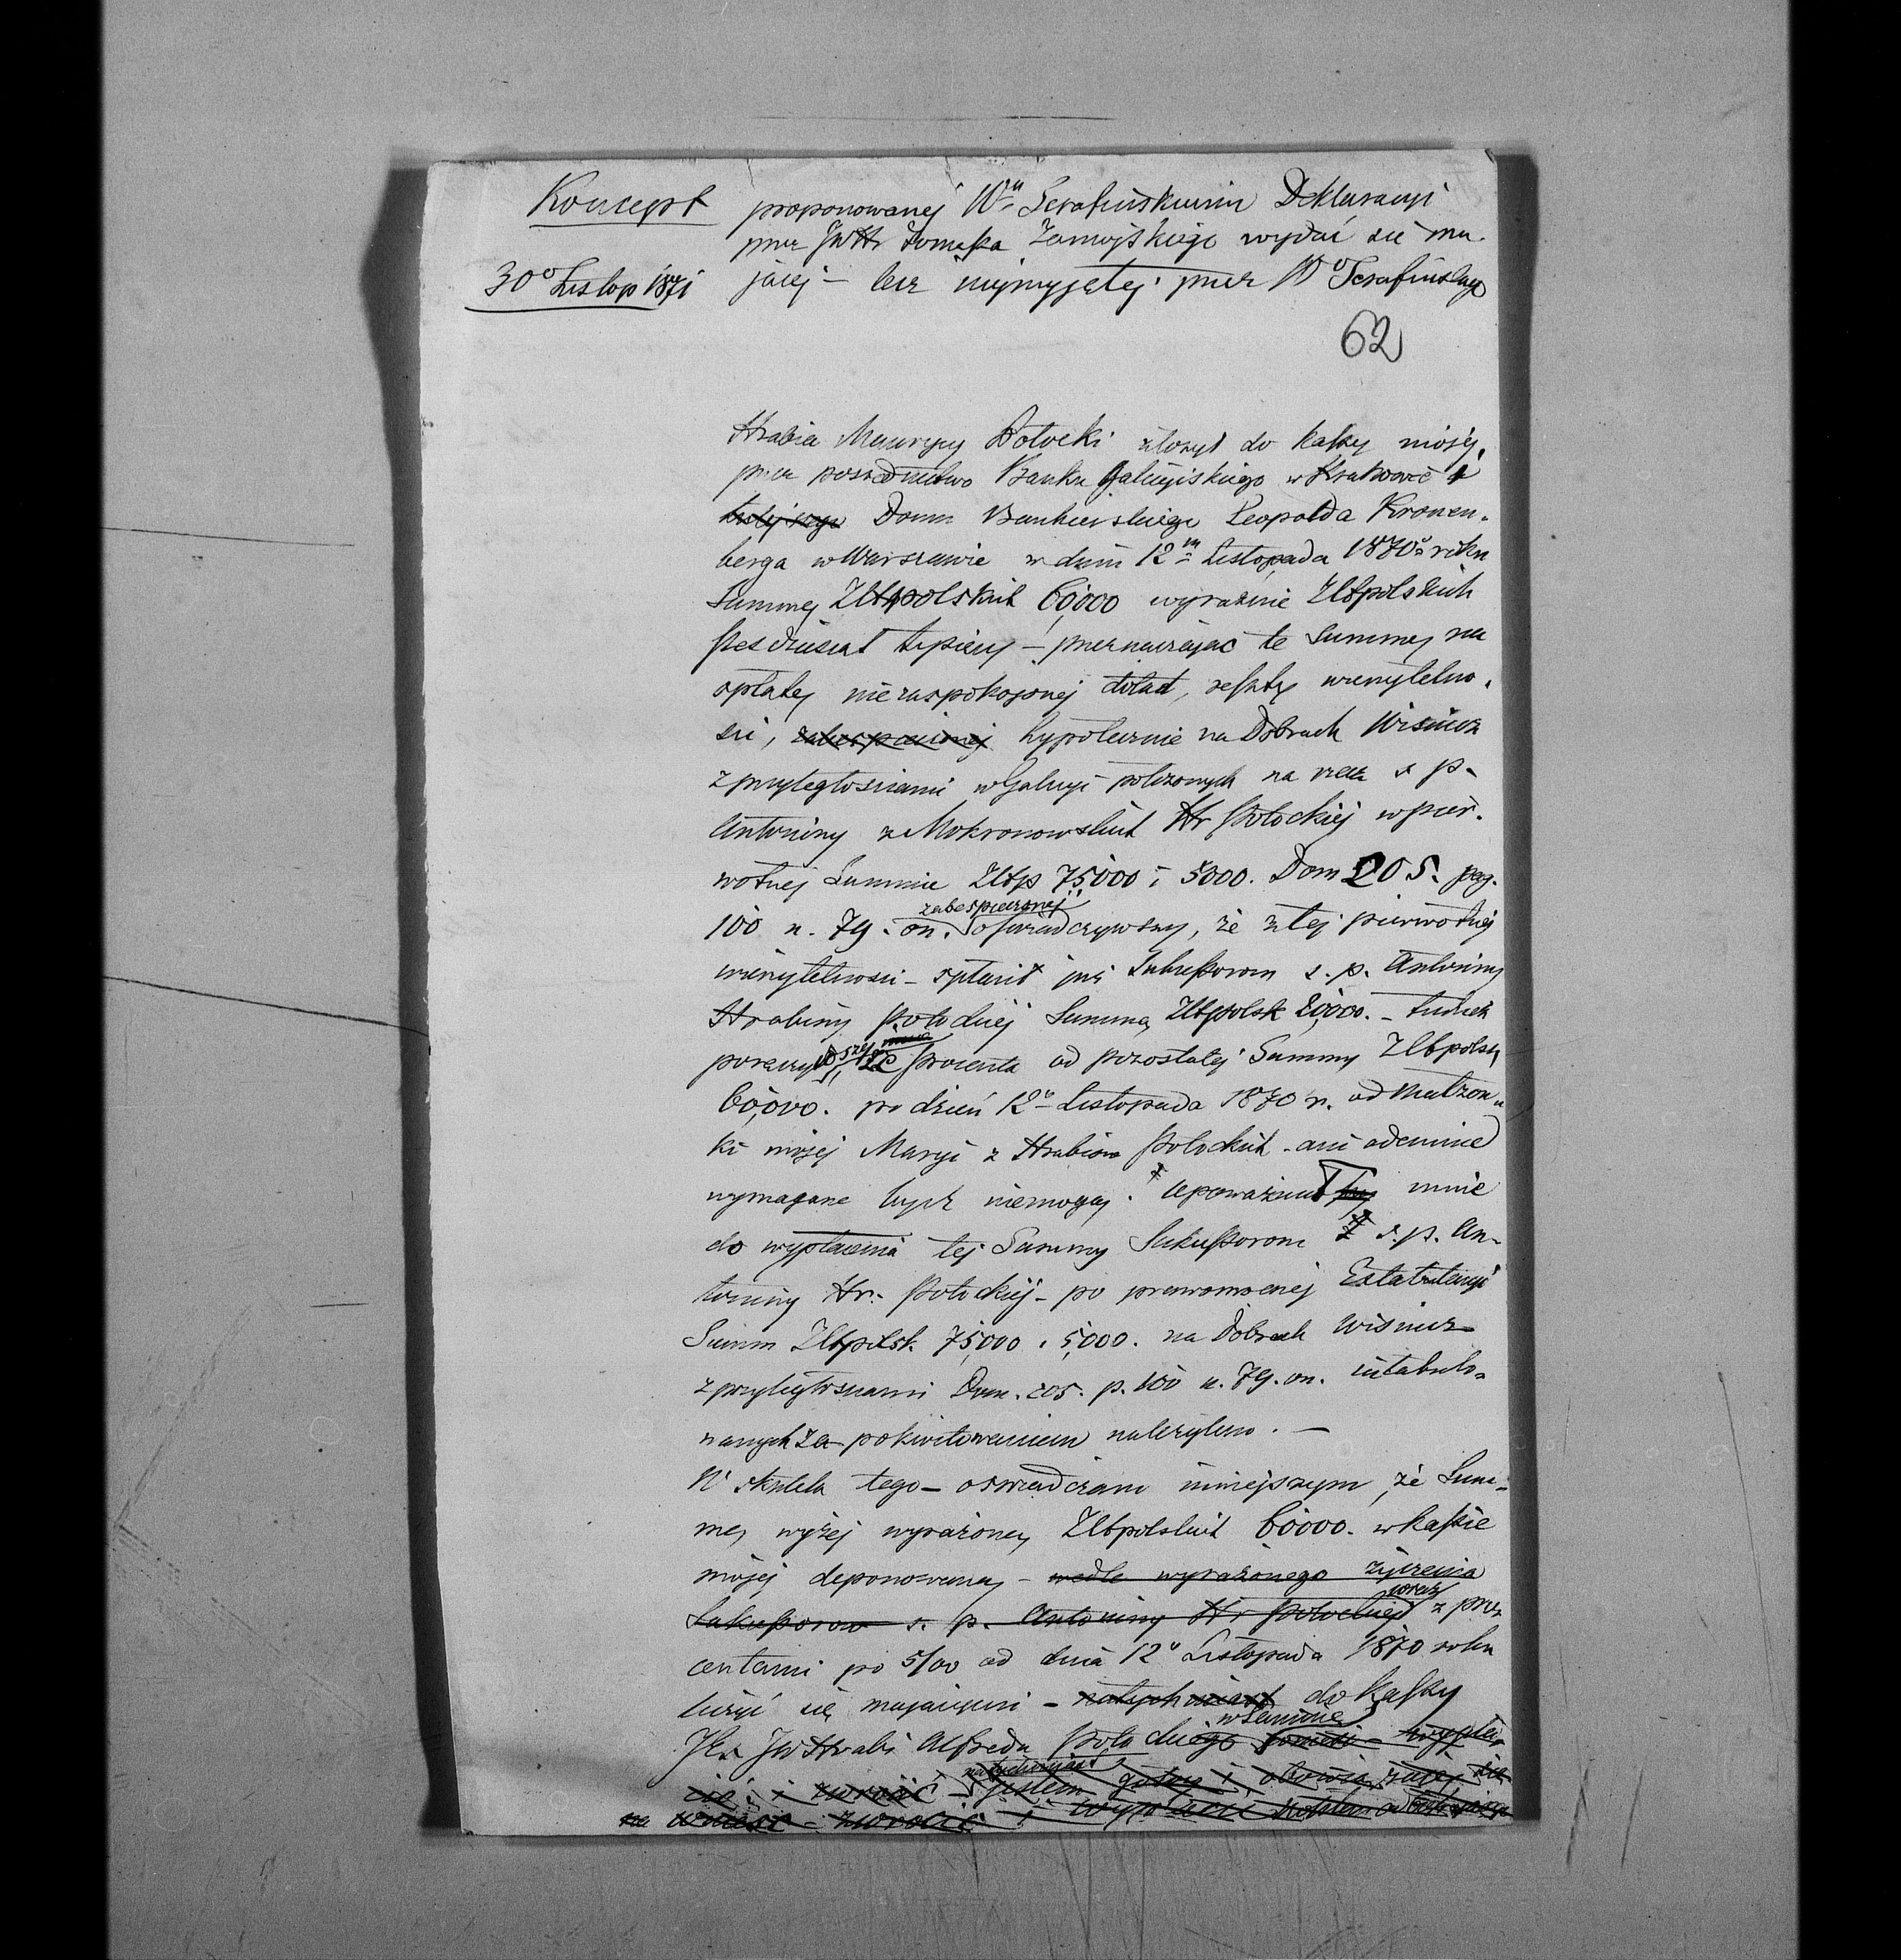 Koncept
30° Listop 1871
proponowanej Wu Serafińskiemu Deklaracyi
przez JWHr Tomasza Zamojskiego wydać się ma-
jącej – lecz nieprzyjętej przez Wo Serafińskiego
62
Hrabia Maurycy Potocki złożył do kassy mojej,
przez pośrednictwo Banku Galicyjskiego w Krakowie i
tutejszego Domu Bankierskiego Leopolda Kronen-
berga w Warszawie w dniu 12m Listopada 1870o roku
Summę Złtpolskich 60,000 wyraźnie Złtpolskich
sześćdziesiąt tysięcy – przeznaczając te Summę na
spłatę niezaspokojonej dotąd, reszty wierzytelno-
ści, zabespieczonej hypotecznie na Dobrach Wisnicz
z przyległościami w Galicyi położonych na rzecz s p.
Antoniny z Mokronowskich Hr Potockiej w pier-
wotnej Summie Złtp 75,000 i 5000. Dom 205. pag.
100 n. 79. on. zabespieczonej oświadczywszy, że z tej pierwotnej
wierzytelności – spłacił już Sukcessorom s. p. Antoniny
Hrabiny Potockiej Summę Złtpolsk 20,000. – tudzież
poręczywszy że procenta od pozostałej Summy Złtpolsk
60,000. po dzień 12o Listopada 1870 r. od Małżon-
ki mojej Maryi z Hrabiów Potockich – ani odemnie
wymagane być niemogą. Upoważnił mnie
do wypłacenia tej Summy Sukcessorom s. p. An-
toniny Hr. Potockiej – po prawomocnej Extabulacyi
Summ Złtpolsk. 75,000 i 5,000. na Dobrach Wisnicz
z przyległościami Dom. 205. p. 100 n. 79. on. intabulo-
wanych za pokwitowaniem należytem. –
W skutek tego – oświadczam niniejszym, że Sum-
mę, wyżej wyrażoną, Złtpolskich 60000. w kassie
mojej deponowaną – wedle wyrażonego życzenia
Sukcessorow s. p. Antoniny Hr Potockiej wraz z pro-
centami po 5/00 od dnia 12o Listopada 1870 roku
liczyć się mającymi – natychmiast do kassy
JEx JWHrabi Alfreda Potockiego w Summie
cić i zwrócić – natychmiast jestem gotów i
na wznieść – zwrócić i